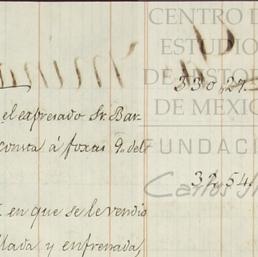 CENTRO D
ESTUDIO
DE HISTOR
DE MEXIC
FUNDACI
Carlos Sl
330,27.
el expresado Sr. Bar-
consta á foxas 9.ª del
32,54
en que se le vendio
llada y enfrenada,